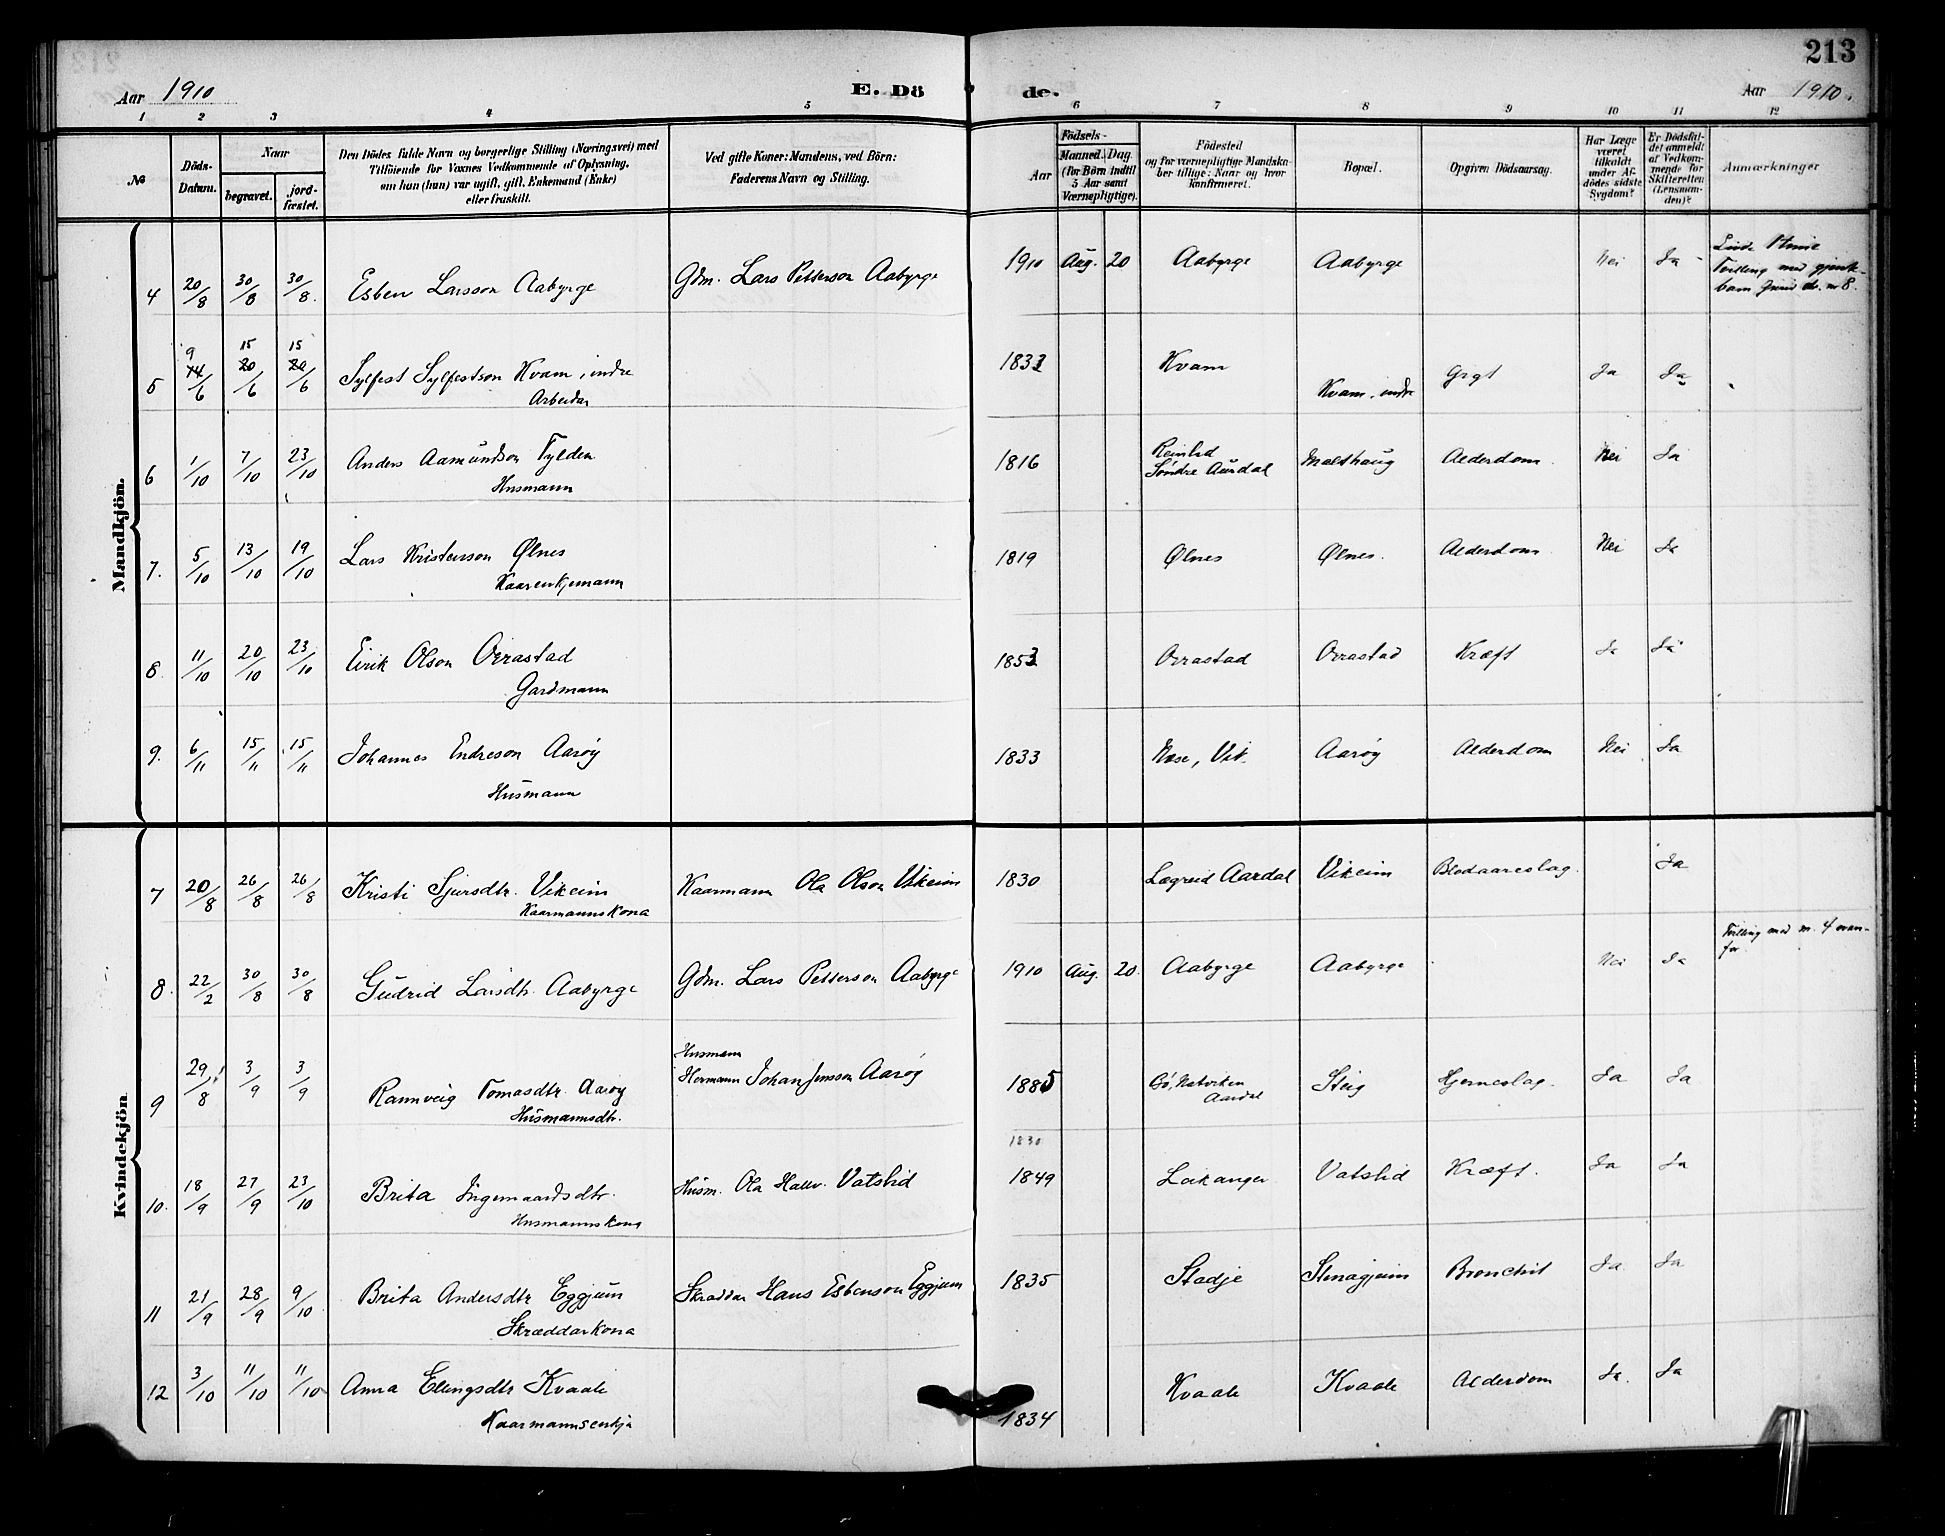 213
Aar 1910
E. Dö
de.
Aar 1910.
1 2 3 4 5 6 7 8 9 10 11 12
№
Döds-
Datum.
Naar
begravet.
jord-
fæstet.
Den Dödes fulde Navn og borgerlige Stilling (Næringsvei) med
Tilföiende for Voxnes Vedkommende af Oplysning,
om han (hun) var ugift, gift, Enkemand (Enke)
eller fraskilt.
Ved gifte Koner: Mandens, ved Börn:
Faderens Navn og Stilling.
Födsels-
Aar
Maaned. Dag
(for Börn indtil
5 Aar samt
Værnepligtige).
Födested
og for værnepligtige Mandska-
ber tillige: Naar og hvor
konfirmeret.
Bopæl.
Opgiven Dödsaarsag.
Har Læge
været
tilkaldt
under Af-
dödes sidste
Sygdom?
Er Dödsfal-
det anmeldt
af Vedkom-
mende for
Skifteretten
(Lensman-
den)?
Anmærkninger
Mandkjön.
4 20/8 30/8 30/8. Esben Larsson Aabyrge Gdm. Lars Petterson Aabyrge 1910 Aug. 20 Aabyrge Aabyrge Nei Ja
Tvilling med
barn
nr 8.
9 15 15
5 14/6 20/6 20/6 Sylfest Sylfestson Kvam, indre 1833 Kvam Kvam, indre Ja Ja
Arbeidar
6 1/10 7/10 23/10 Anders Aamundson Tylden 1816 Reinlid
Söndre Aurdal Maalthaug Alderdom Nei Ja
Husmann
7. 5/10 13/10 19/10 Lars Kristensson Ølnes 1819 Ølnes Ølnes. Alderdom Nei Ja
Kaarenkjemann
8. 11/10 20/10 23/10 Eirik Olson Orrastad 1853 Orrastad Orrastad Kræft Ja Ja
Gardmann
9. 6/11 15/11 15/11 Johannes Endreson Aarøy 1833 Nese, Vik. Aarøy Alderdom Nei Ja
Husmann
Kvindekjön.
7 20/8 26/8 26/8 Kristi Sjursdtr. Vikeim Kaarmann Ola Olson Vikeim 1830 Lægreid Aardal Vikeim Blodaareslag. Ja
Kaarmannskona
8. 22/2 30/8 30/8 Gudrid Larsdtr. Aabyrge Gdm. Lars Petterson Aabyrge 1910 Aug. 20. Aabyrge Aabyrge Nei Ja
Tvilling med nr. 4 ovan-
for.
9 29/8 3/9 3/9 Rannveig Tomasdtr. Aarøy
Husmannsdtr.
Husmann
Hermann Johan Jensson Aarøy 1885 Natviken
Aardal Steig Hjerneslag. Ja Ja
1830
10. 18/9 27/9 23/10 Brita Ingemaardsdtr. Husm. Ola Hallv. Vatslid 1849 Leikanger Vatslid Kræft. Ja Ja
Husmannskona
11 21/9 28/9 9/10 Brita Andersdtr Eggjum Skraddar Hans Esbenson Eggjum 1835 Stadje Stenagjeim Bronchit Ja Ja
Skræddarkona
12 3/10 11/10 11/10 Anna Ellingsdtr Kvaale 1834 Kvaale Kvaale Alderdom Ja. Ja
Kaarmannsenkja